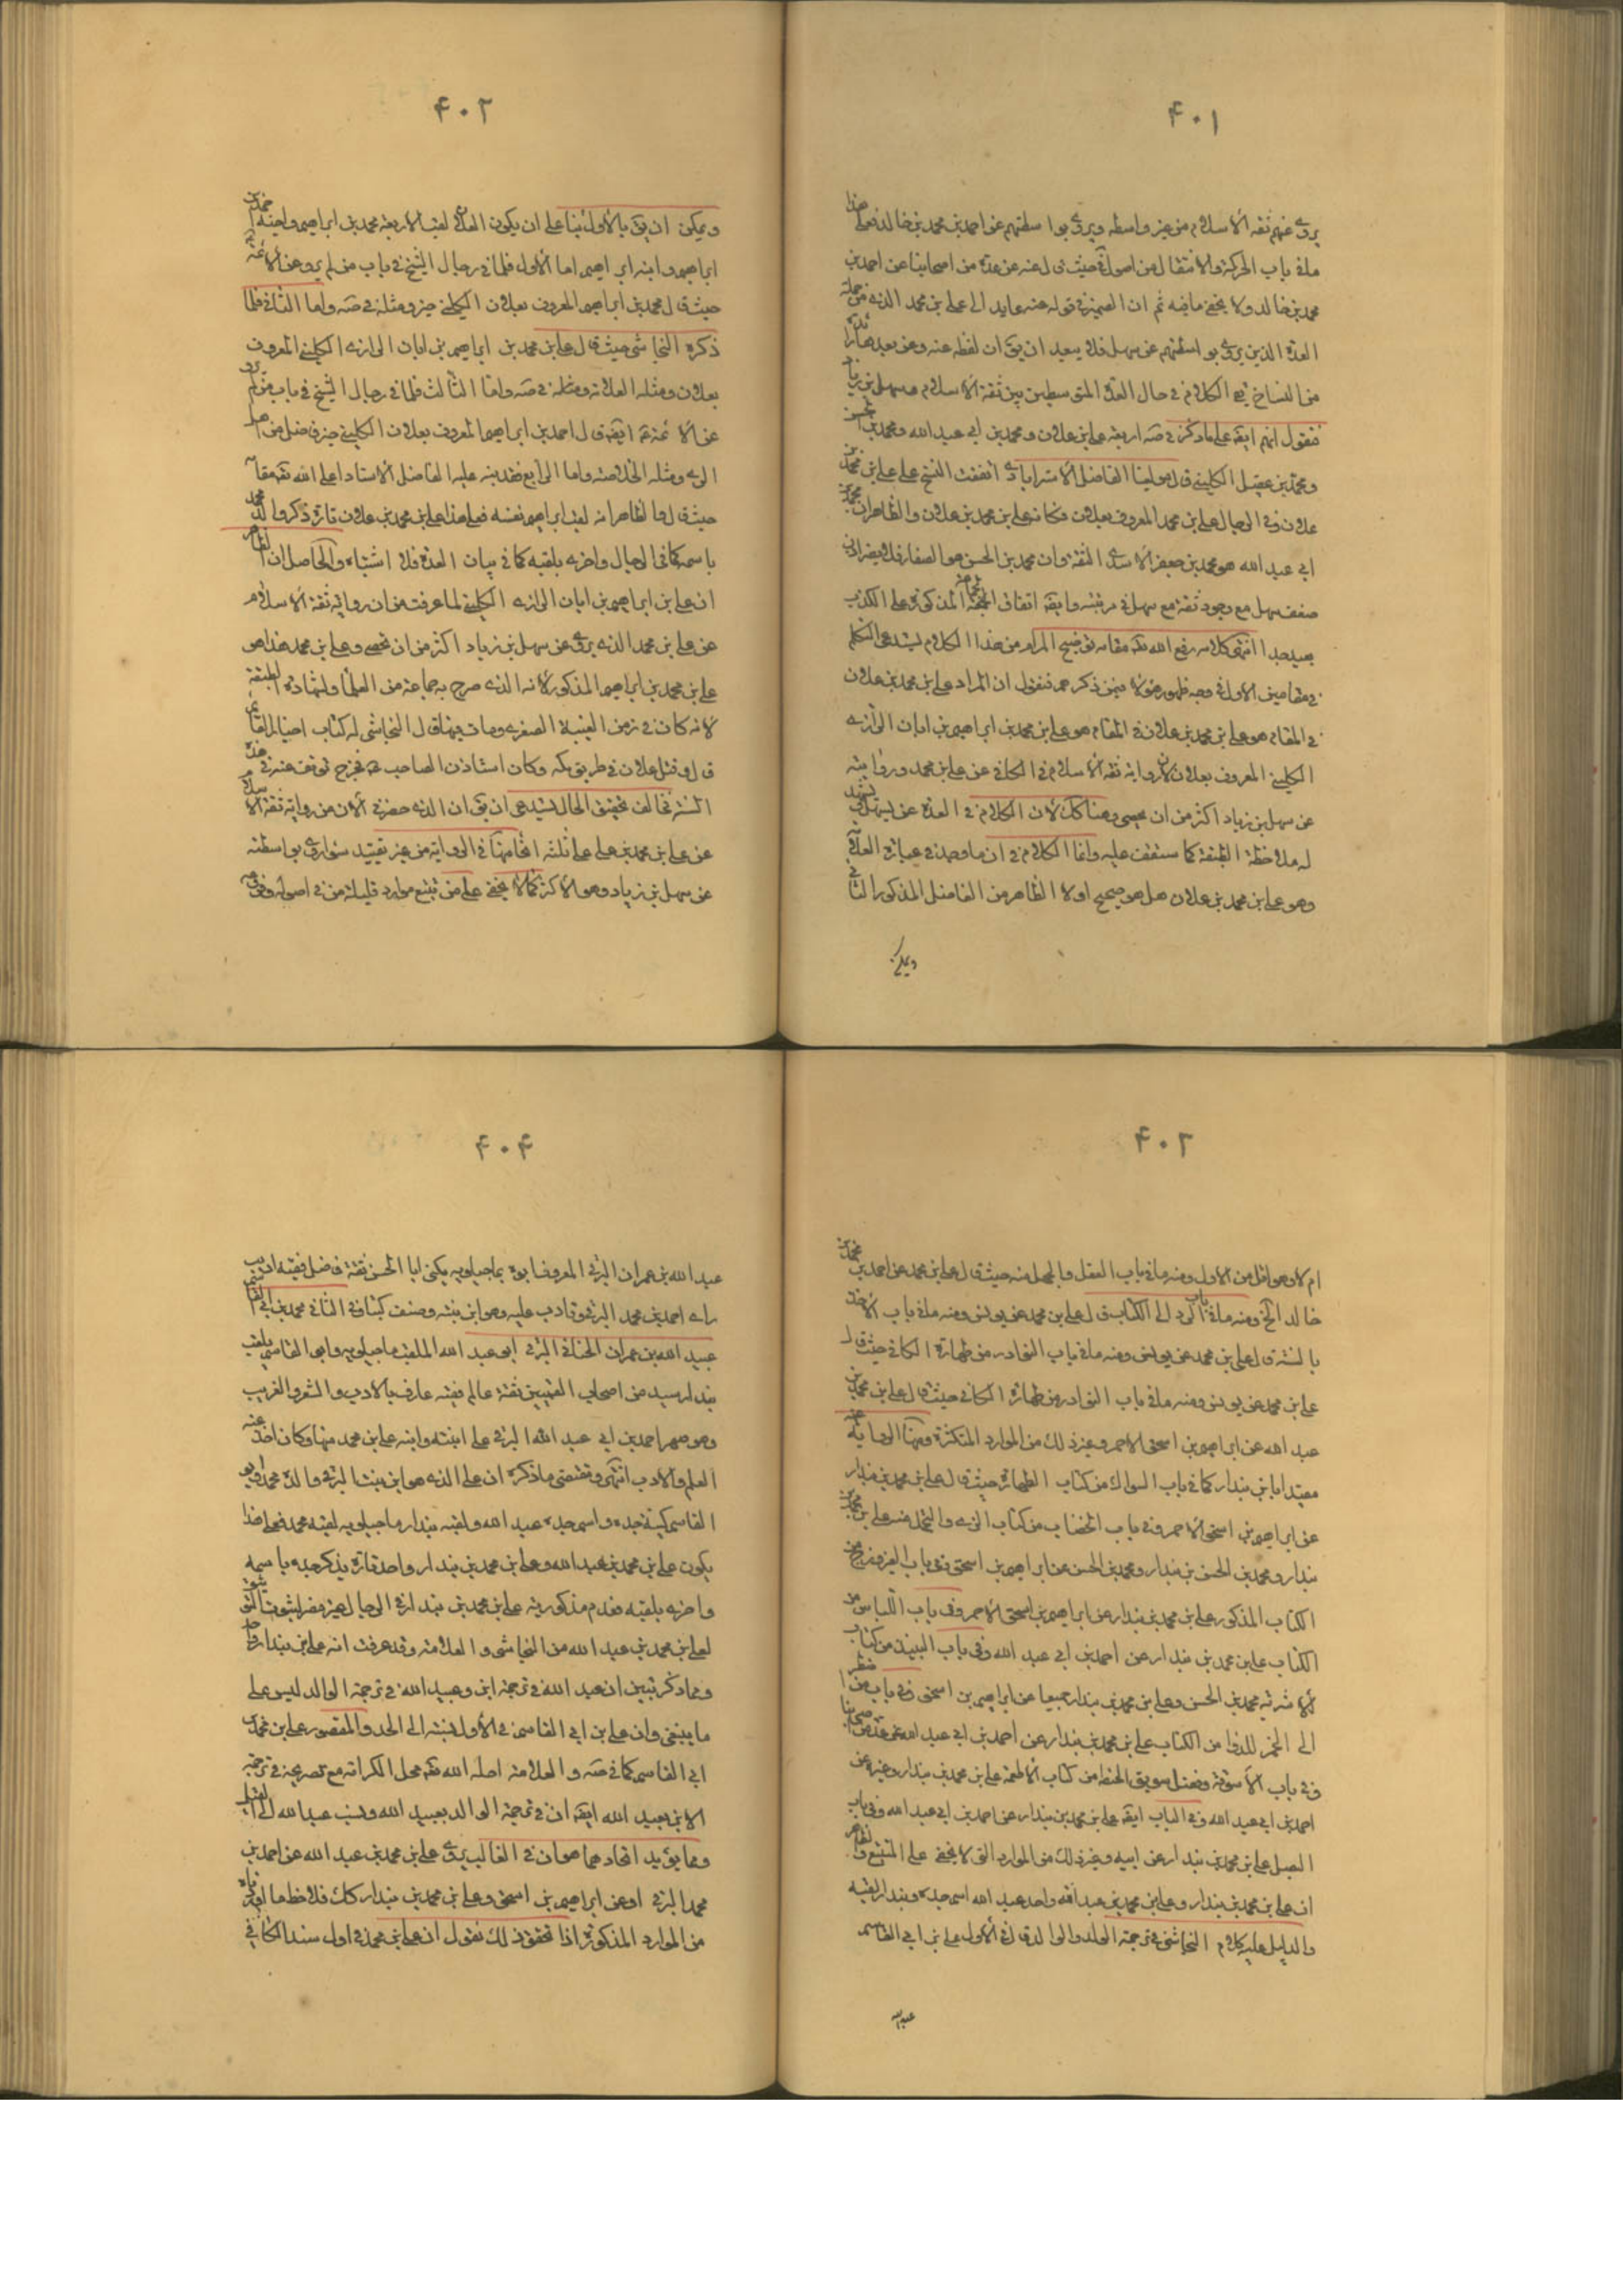 ۴۰۱
يروى عنهم ثقة الاسلام من غير واسطة ويروى بواسطتهم عن احمد بن محمد بن خالد فعلى هذا
ما فى باب الحركة والانتقال من اصوله حيث قال عنه عن عدة من اصحابنا عن احمد بن
محمد بن خالد ولا يخفى ما فيه ثم ان الضمير فى قوله عنه عايد الى على بن محمد الذى من جملة
العدة الذين يروى بواسطتهم عن سهل فلا يبعد ان يق ان لفظة عنه وعن بعد هذا زائدة
من النساخ بقى الكلام فى حال العدة المتوسطين بين ثقة الاسلام وسهل بن زياد
فنقول انهم ايضه على ما ذكره فى صه اربعة على بن علان ومحمد بن ابى عبد الله ومحمد بن الحسن
ومحمد بن عقيل الكلينى قال مولينا الفاضل الاسترابادى اتفقت النسخ على على بن محمد بن
علان وفى الرجال على بن محمد المعروف بعلان فكانه على بن محمد بن علان والظاهر ان محمد بن
ابى عبد الله هو محمد بن جعفر الاسدى الثقة وان محمد بن الحسن هو الصفار فلا يضر اذن
ضعف سهل مع وجود ثقة مع سهل فى مرتبته وايضه اتفاق الجماعة المذكورة على الكذب
بعيد جدا انتهى كلامه رفع الله تعه مقامه توضيح المرام من هذا الكلام يستدعى التكلم
فى مقامين الاول فى وجه ظهور هؤلاء فيمن ذكرهم فنقول ان المراد على بن محمد بن علان
فى المقام هو على بن محمد بن علان فى المقام هو على بن محمد بن ابراهيم بن ابان الرازى
الكلينى المعروف بعلان لان رواية ثقة الاسلام فى الكافى عن على بن محمد وروايته
عن سهل بن زياد اكثر من ان يحصى وهنا كك لان الكلام فى العدة عن سهل ويشهد
له ملاحظة الطبقة كما ستقف عليه وانما الكلام فى ان ما وجد فى عبائر العلامة
وهو على بن محمد بن علان هل هو صحيح اولا الظاهر من الفاضل المذكور الثانى
ويمكن
۴۰۲
ويمكن ان يق بالاول بناء على ان يكون العلان لقبا لاربعة محمد بن ابراهيم واحمد بن
ابراهيم وابنه ابراهيم اما الاول فلما فى رجال الشيخ فى باب من لم يرو عن الائمة
حيث قال محمد بن ابراهيم المعروف بعلان الكلينى خير ومثله فى صه واما الثانى فلما
ذكره النجاشى حيث قال على بن محمد بن ابراهيم بن ابان الرازى الكلينى المعروف
بعلان ومثله العلامة ومثله فى صه واما الثالث فلما فى رجال الشيخ فى باب من لم يرو
عن الائمة ع ايضه قال احمد بن ابراهيم المعروف بعلان الكلينى خير فاضل من اهل
الرى ومثله الخلاصة واما الرابع فقد نبه عليه الفاضل الاستاد اعلى الله تعه مقامه
حيث قال والظاهر انه لقب ابراهيم نفسه فعلى هذا على بن محمد بن علان تارة ذكر والد محمد
باسمه كما فى الرجال واخرى بلقبه كما فى بيان العدة فلا اشتباه والحاصل ان الظاهر
ان على بن ابراهيم بن ابان الرازى الكلينى لما عرفت من ان رواية ثقة الاسلام
عن على بن محمد الذى يروى عن سهل بن زياد اكثر من ان تحصى وعلى بن محمد هذا هو
على بن محمد بن ابراهيم المذكور لانه الذى صرح به جماعة من العلماء ولشهادة الطبقة
لانه كان فى زمن الغيبة الصغرى ومات فيها قال النجاشى له كتاب اخبار القائم
قال وقتل علان فى طريق مكه وكان استاذن الصاحب ع فخرج توقف عنه فى هذه
السنة فخالف تحقيق الحال يستدعى ان يق ان الذى حضرنى الان من رواية ثقة الاسلام
عن على بن محمد بن على على ثلثة انحاء منها فى الرواية من غير تقييد سواء روى بواسطته
عن سهل بن زياد وهو الاكثر كما لا يخفى على من تتبع موارد قليلة من فى اصوله وفروعه
۴۰۳
ام لا وهو اقل من الاول ومنه ما فى باب العقل والجهل منه حيث قال على بن محمد عن احمد بن محمد بن
خالد الخ ومنه ما فى باب الرد الى الكتاب قال على بن محمد عن يونس ومنه ما فى باب الاخذ
بالسنة قال على بن محمد عن يونس ومنه ما فى باب النوادر من طهارة الكافى حيث قال
على بن محمد عن يونس ومنه ما فى باب النوادر من طهارة الكافى حيث قال على بن محمد بن
عبد الله عن ابراهيم بن اسحق الاحمر وغير ذلك من الموارد المتكثرة ومنها الرواية عنه
مقيدا بابن بندار كما فى باب السواك من كتاب الطهارة حيث قال على بن محمد بن بندار
عن ابراهيم بن اسحق الاحمر وفى باب الخضاب من كتاب الزى والتجمل منه على بن محمد بن
بندار ومحمد بن الحسن بن بندار ومحمد بن الحسن عن ابراهيم بن اسحق وفى باب من
الكتاب المذكور على بن محمد بن بندار عن ابراهيم بن اسحق الاحمر وفى باب اللباس من
الكتاب على بن محمد بن بندار عن احمد بن ابى عبد الله وفى باب النبيذ من كتاب
الاشربة محمد بن الحسن وعلى بن محمد بن بندار جميعا عن ابراهيم بن اسحق وفى باب من اضطر
الى الخمر للدواء من الكتاب على بن محمد بن بندار عن احمد بن ابى عبد الله عن عدة من اصحابنا
وفى باب الاسوقة وفضل سويق الحنطة من كتاب الاطعمة على بن محمد بن بندار وغيره عن
احمد بن ابى عبد الله وفى الباب ايضه على بن محمد بن بندار عن احمد بن ابى عبد الله وفى باب
البصل على بن محمد بن بندار عن ابيه وغير ذلك من الموارد التى لا يخفى على المتتبع والظاهر
ان على بن محمد بن بندار وعلى بن محمد بن عبد الله واحد عبد الله اسم جده وبندار لقبه
والدليل عليه كلام النجاشى فى ترجمة الولد والوالد قال فى الاول على بن ابى القاسم
عبد الله
۴۰۴
عبد الله بن عمران البرقى المعروف ابوه بماجيلويه يكنى ابا الحسن ثقة فاضل فقيه اديب
راى احمد بن محمد البرقى وتادب عليه وهو ابن بنته وصنف كتبا وفى الثانى محمد بن ابى القاسم
عبيد الله بن عمران الجنابى البرقى ابو عبد الله الملقب ماجيلويه وابو القاسم يلقب
بندار سيد من اصحاب القميين ثقة عالم فقيه عارف بالادب والشعر والغريب
وهو صهر احمد بن ابى عبد الله البرقى على ابنته وابنه على بن محمد منها وكان اخذ عنه
العلم والادب انتهى ومقتضى ما ذكره ان على الذى هو ابن بنت البرقى والده محمد وابو
القاسم كنية جده واسم جده عبد الله ولقبه بندار ماجيلويه لقبه محمد فعلى هذا
يكون على بن محمد بن عبد الله وعلى بن محمد بن بندار واحد فتارة يذكر جده باسمه
واخرى بلقبه فعدم مذكورية على بن محمد بن بندار فى الرجال غير مضر لثبوت التوثيق
لعلى بن محمد بن عبد الله من النجاشى والعلامة وقد عرفت انه على بن بندار
ومما ذكر تبين ان عبد الله فى ترجمة ابن وعبيد الله فى ترجمة الوالد ليس على
ما ينبغى وان على بن ابى القاسم فى الاول نسبته الى الجد والمقصود على بن محمد بن
ابى القاسم كما فى صه والعلامة احله الله تعه محل الكرامة مع تصريحه فى ترجمة
الابن بعبيد الله ايضه ان فى ترجمة الوالد بعبيد الله ونسب عبد الله الى
ومما يؤيد اتحادهما هو ان فى الغالب يروى على بن محمد بن عبد الله عن احمد بن
محمد البرقى او عن ابراهيم بن اسحق وعلى بن محمد بن بندار كك فلاحظ ما
من الموارد المذكورة اذا تحقق ذلك نقول ان على بن محمد فى اول سند الكافى